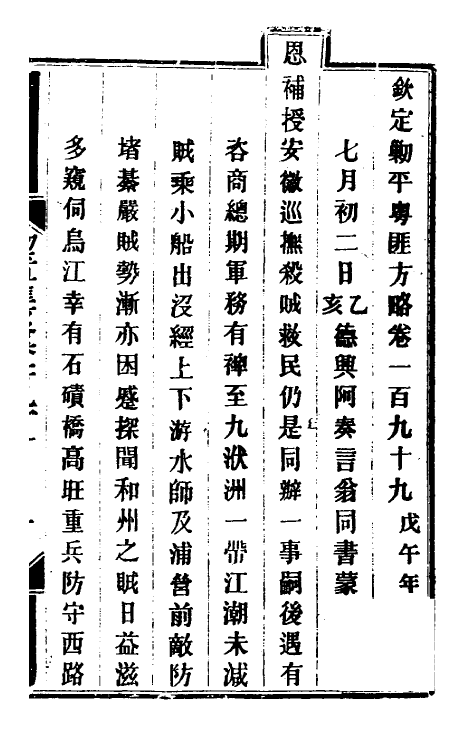 欽定勦平粵匪方略卷一百九十九戊午年
七月初二日乙亥德興阿奏言翁同書蒙
恩補授安徽巡撫殺賊救民仍是同辦一事嗣後遇有
咨商總期軍務有裨至九洑洲一帶江潮未減
賊乘小船出沒經上下游水師及浦營前敵防
堵綦嚴賊勢漸亦困蹙探聞和州之賊日益滋
多窺伺烏江幸有石磧橋高旺重兵防守西路